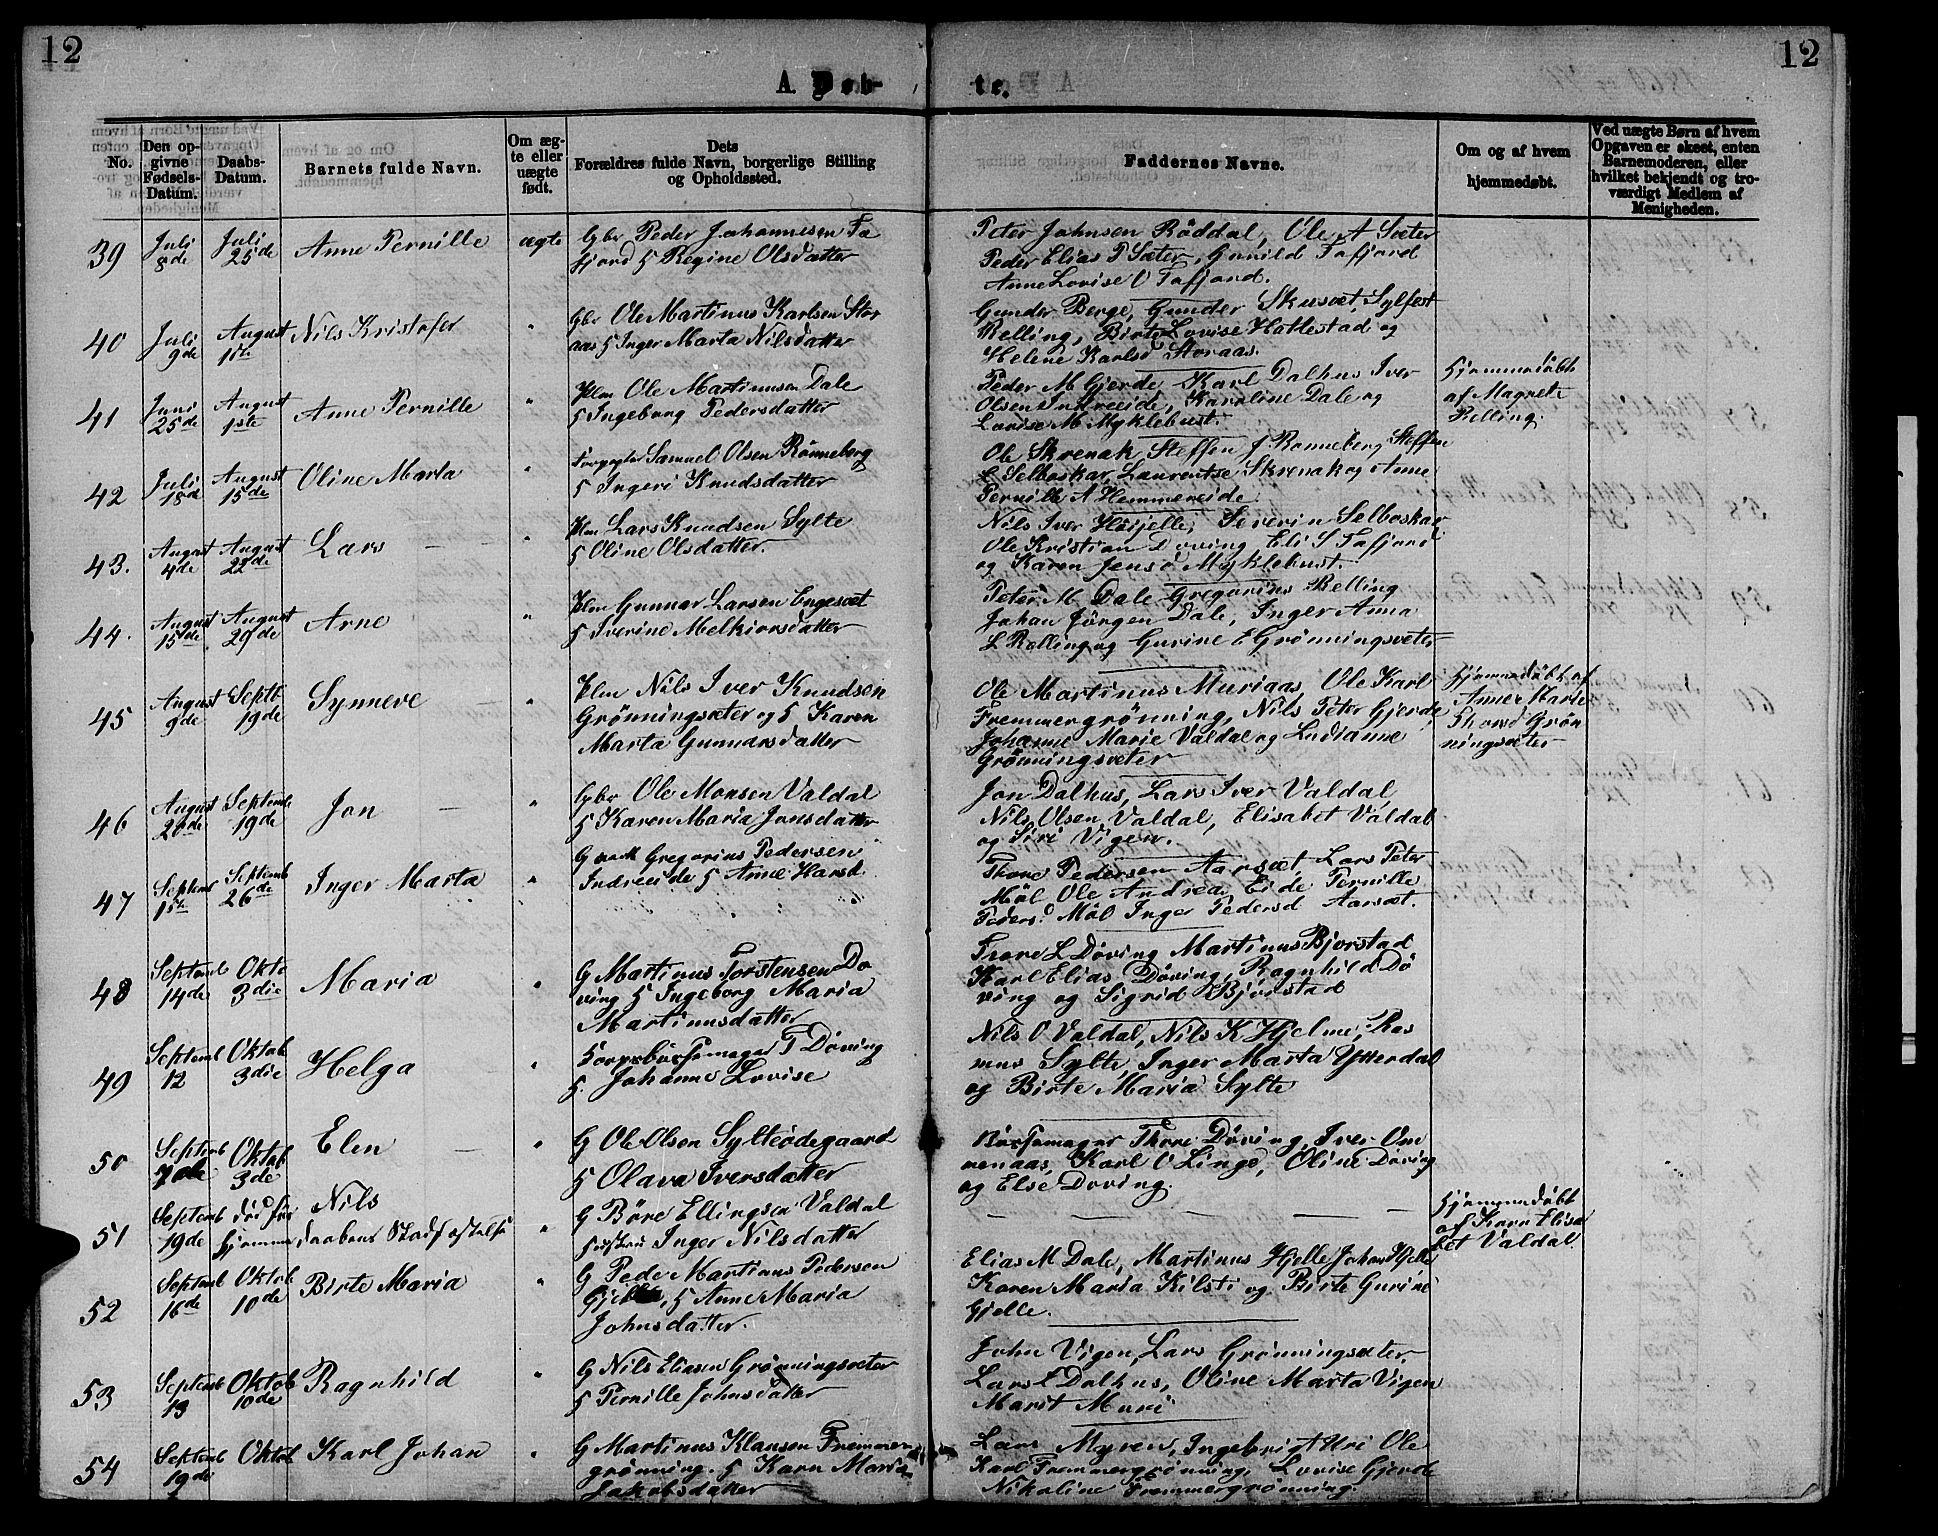 12
12
A. Døb-
te.
No.
Den op-
givne
Fødsels-
Datum.
Daabs-
Datum.
Barnets fulde Navn.
Om æg-
te eller
uægte
født.
Dets
Forældres fulde Navn, borgerlige Stilling
og Opholdssted.
Faddernes Navne.
Om og af hvem
hjemmedøbt.
Ved uægte Børn af hvem
Opgaven er skeet, enten
Barnemoderen, eller
hvilket bekjendt og tro-
værdigt Medlem af
Menigheden.
39
Juli
8de
Juli
25de
Anne Pernille
ægte
Gbr Peder Johannesen Ta
fjord H Regine Olsdatter
Peter Johnsen Röddal, Ole A Sæter
Peder Elias P Sæter, Gunild Tafjord
Anne Lovise O Tafjord.
40
Juli
9de
August
1ste
Nils Kristofer
"
Gbr Ole Martinus Karlsen Stor
aas H Inger Marta Nilsdatter
Gunder Berge, Gunder Skusæt, Sylfest
Relling, Birte Lovise Hattestad og
Helene Karlsd Storaas.
41
Juni
25de
August
1ste
Anne Pernille
"
Hm Ole Martinusen Dale
H Ingeborg Pedersdatter
Peder M Gjerde, Karl Dalhus Iver
Olsen Indreeide, Karoline Dale og
Lovise M Myklebust.
Hjemmedöbt
af Magnete
Relling.
42
Juli
18de
August
15de
Oline Marta
"
Samuel Olsen Rönneberg
H Ingeri Knudsdatter
Ole Skrenak Steffen J Ronneberg Steffen
Selboskar, Laurentse Skrenak og Anne
Pernille A Hemmereide
43.
August
4de
August
22de
Lars
"
Hm Lars Knudsen Sylte
H Oline Olsdatter.
Nils Iver Höijelle, Severin Selboskar
Ole Kristian Döving Eli S Tafjord
og Karen Jensd Myklebust.
44.
August
15de
August
29de
Arne
"
Hm Gunnar Larsen Engesæt
H Iverine Melkiorsdatter
Peter M Dale Gregorius Relling
Johan Jörgen Dale, Inger Anna
L Relling og Gurine E Grönningsæter
45
August
9de
Septb
19de
Synneve
"
Hm Nils Iver Knudsen
Grönningsæter og H Karen
Marta Gunnarsdatter
Ole Martinus Muriaas, Ole Karl
Fremmergrönning, Nils Peter Gjerde
Johanne Marie Valdal og Ludianne
Grönningsæter
Hjemmedöbt af
Anne Marte
Thorsd Grön
ningsæter
46
August
26de
Septemb
19de
Jon
"
Gbr Ole Monsen Valdal
H Karen Maria Jonsdatter
Jon Dalhus, Lars Iver Valdal
Nils Olsen Valdal, Elisabet Valdal
og Siri Vigen.
47
Septemb
1ste
Septemb
26de
Inger Marta
"
Gregorius Pedersen
Indreeide H Anne Hansd
Thore Pedersen Aarsæt, Lars Peter
Möl Ole Andrea Eide Pernille
Pedersd Möl Inger Pedersd Aarsæt.
48
Septemb
14de
Okto
3die
Maria
"
G Martinus Torstensen Dö
ving H Ingeborg Maria
Martinusdatter
Tore L Döving Martinus Bjorstad
Karl Elias Döving, Ragnhild Dö
ving og Sigrid Bjorstad
49
Septemb
12
Oktob
3die
Helga
"
T Döving
H. Johanne Lovise
Nils O Valdal, Nils K Hjelme, Ras
mus Sylte, Inger Marta Ytterdal
og Birte Maria Sylte
50
Septemb
7de
Oktob
3de
Elen
"
G Ole Olsen Sylteödegaard
H Olava Iversdatter
Börsemager Thore Döving, Iver Om
menaas, Karl O Linge, Oline Döving
og Else Doving.
51
Septemb
19de
död för
hjemme
Nils
daabens
"
G Böre Ellingsen Valdal
Hustru Inger Nilsdatter
Hjemmedöbt
af Karn Elisa
bet Valdal
52
Septemb
16de
Oktob
10de
Birte Maria
"
G Pede Martinus Pedersen
H Anne Maria
Johnsdatter.
Elias M Dale, Martinus Hjelle Johan Hjelle
Karen Maria Kilsti og Birte Gurine
Gjelle.
53
Septemb
13
Oktob
10de
Ragnhild
"
G Nils Eliasen Grönningsæter
H Pernille Johnsdatter
John Vigen, Lars Grönningsæter.
Lars E Dalhus, Oline Marta Vigen
Marit Muri
54
Septemb
19de
Oktob
Karl Johan
"
G Martinus Klausen Fremmer
grönning. H Karn Maria
Jakobsdatter
Lars Myren, Ingebrigt Uri Ole
Karl Fremmergrönning, Lovise Gjerde
Nikoline Fremmergrönning.